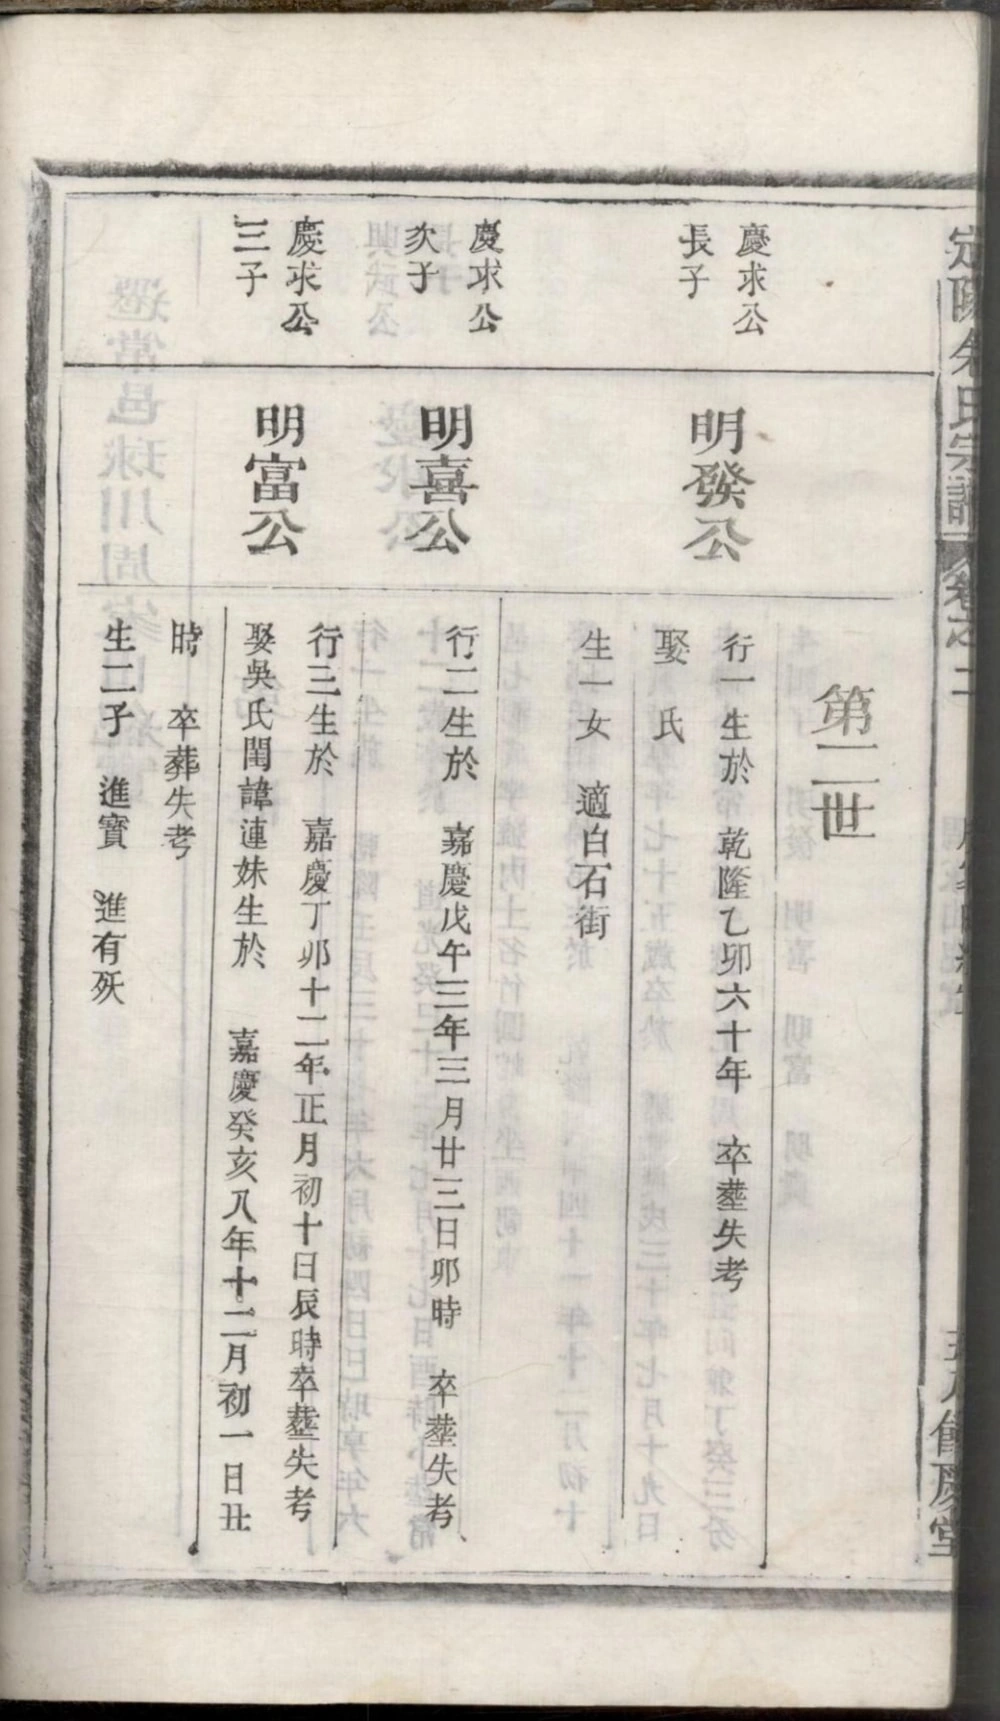 宗譜
第二世
慶求公
長子
明發公
行一生於 乾隆乙卯六十年 卒塟失考
娶 氏
生一女 適白石街
慶求公
次子
明喜公
行二生於 嘉慶戊午三年三月廿三日卯時 卒塟失考
慶求公
三子
明富公
行三生於 嘉慶丁卯十二年正月初十日辰時卒塟失考
娶吳氏閨諱連妹生於 嘉慶癸亥八年十二月初一日丑
時 卒葬失考
生二子 進寳 進有殀